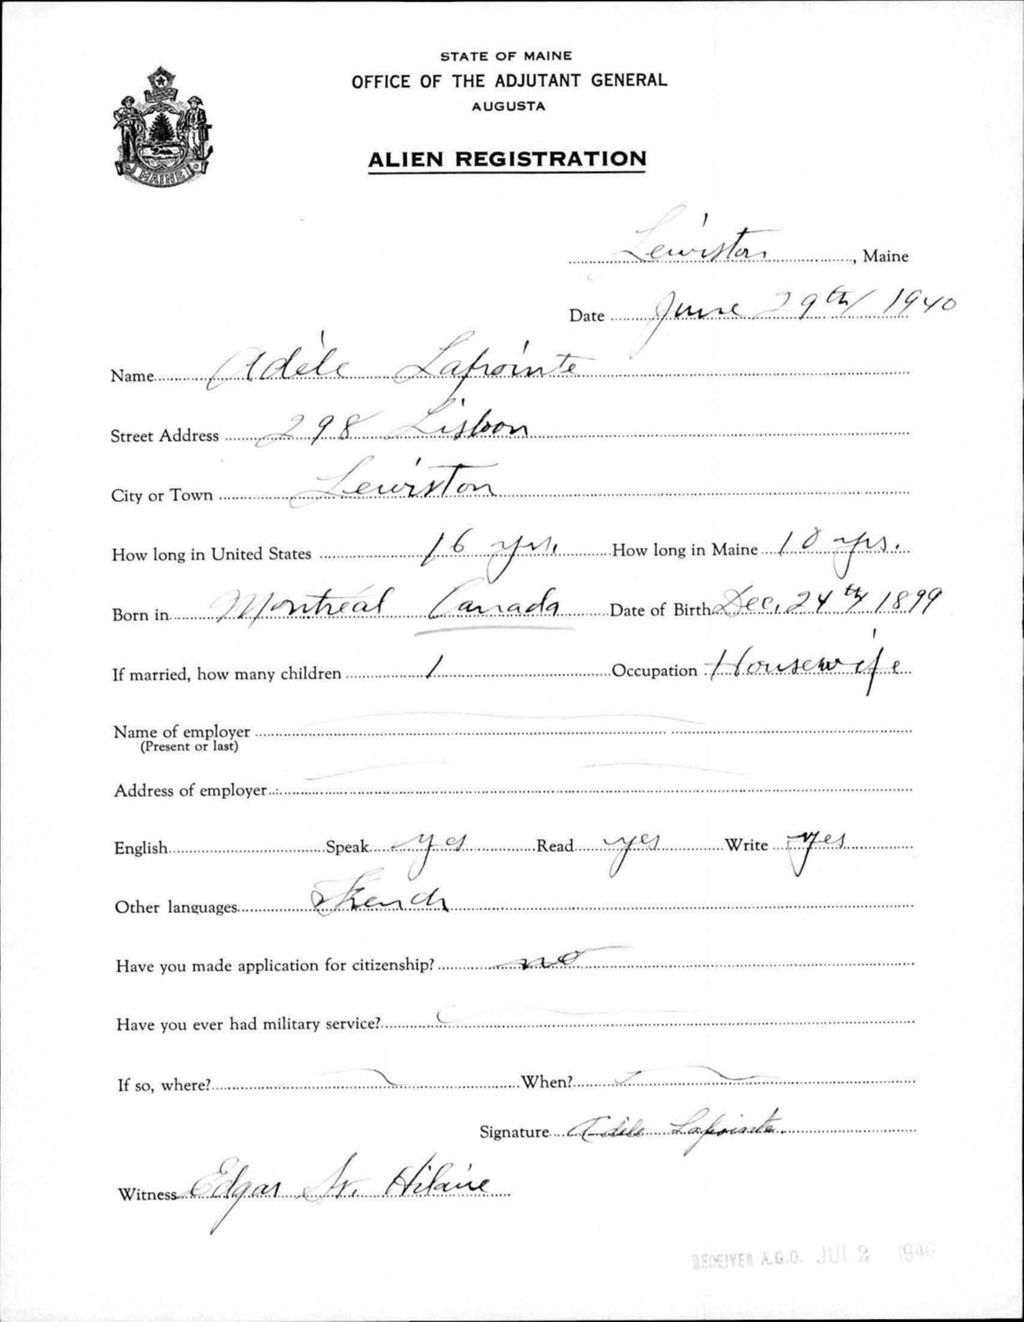 STATE OF MAINE
OFFICE OF THE ADJUTANT GENERAL
AUGUSTA
ALIEN REGISTRATION
MAINE
Lewiston, Maine
Date June 29th 1940
Name Adèle Lapointe
Street Address 298 Lisbon
City or Town Lewiston
How long in United States 16 yrs. How long in Maine 10 yrs.
Born in Montreal Canada Date of Birth Dec. 24th 1899
If married, how many children 1 Occupation Housewife
Name of employer
(Present or last)
Address of employer
English Speak yes Read yes Write yes
Other languages French
Have you made application for citizenship? no
Have you ever had military service?
If so, where? When?
Signature Adèle Lapointe
Witness Edgar St. Hilaire
RECEIVED A.G.O. JUL 2 1940